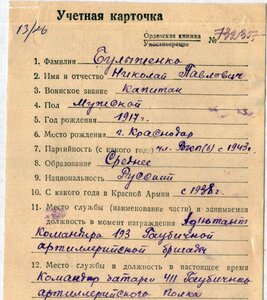 13/26
Учетная карточка
Орденская книжка
Удостоверение
№
1. Фамилия Булыженко
2. Имя и отчество Николай Павлович
3. Воинское звание Капитан
4. Пол Мужской
5. Год рождения 1917г.
6. Место рождения г. Краснодар
7. Партийность (с какого года) чл. ВКП(б) с 1943г.
8. Образование Среднее
9. Национальность Русский
10. С какого года в Красной Армии с 1938г.
11. Место службы (наименование части) и занимаемая
должность в момент награждения Адъютант
Командира 193 Гаубичной
артиллерийской бригады
12. Место службы и должность в настоящее время
Командир батареи 411 Гаубично
артиллерийского Полка